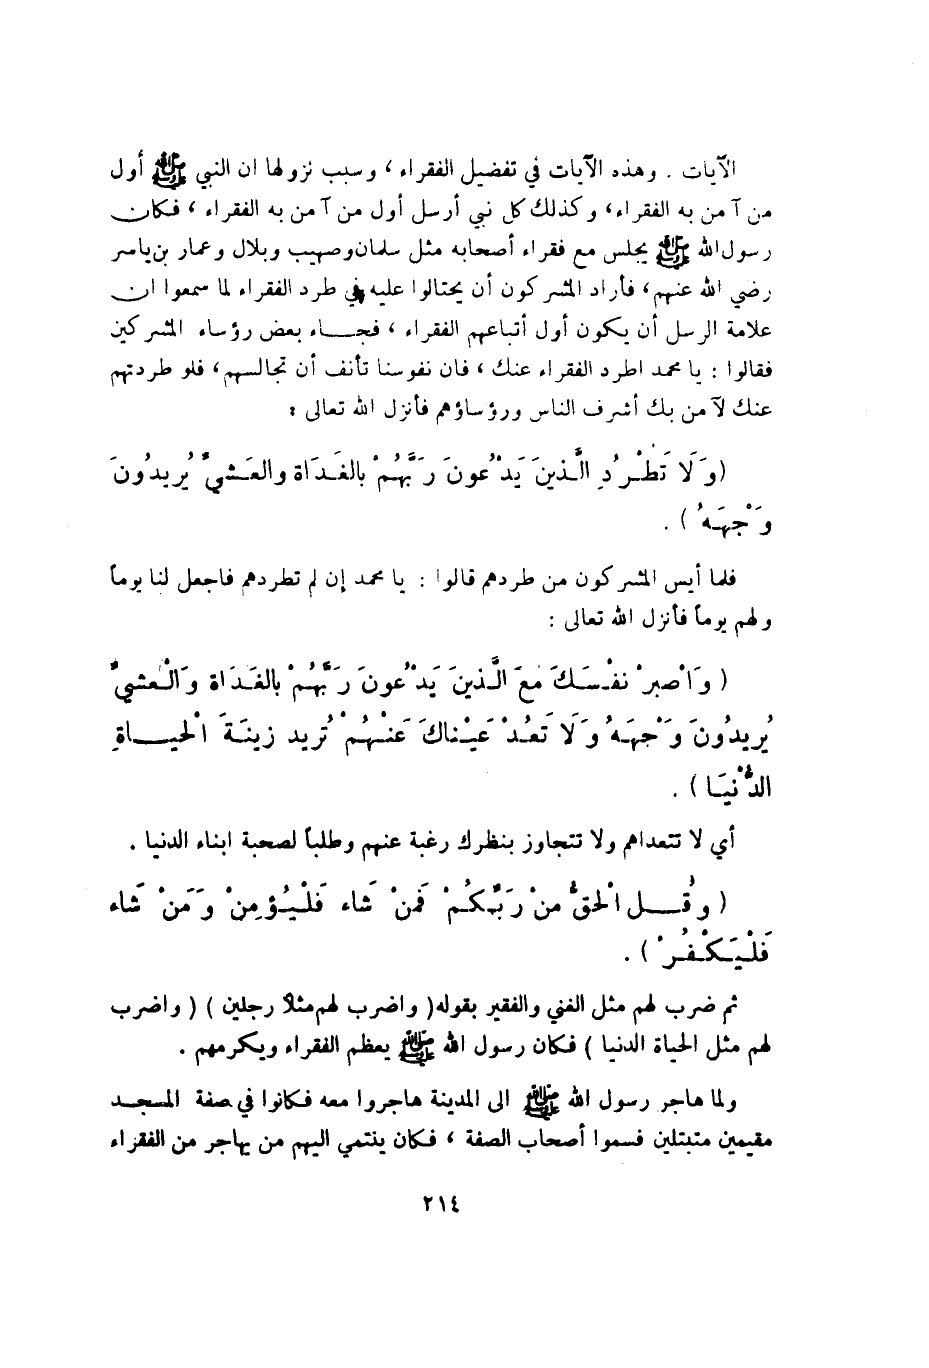 الآيات . وهذه الآيات في تفضيل الفقراء ، وسبب نزولها ان النبي ﷺ أول
من آمن به الفقراء، وكذلك كل نبي أرسل أول من آمن به الفقراء ، فكان
رسول الله ﷺ يجلس مع فقراء أصحابه مثل سلمان وصهيب وبلال وعمار بن ياسر
رضي الله عنهم، فأراد المشركون أن يحتالوا عليه في طرد الفقراء لما سمعوا ان
علامة الرسل أن يكون أول أتباعهم الفقراء ، فجاء بعض رؤساء المشركين
فقالوا : يا محمد اطرد الفقراء عنك ، فان نفوسنا تأنف أن تجالسهم، فلو طردتهم
عنك لآمن بك أشرف الناس ورؤساؤهم فأنزل الله تعالى :
(وَلَا تَطْرُدِ الَّذينَ يَدْعونَ رَبَّهُمْ بالغَدَاة والعَشيِّ يُريدُونَ
وَجْهَهُ ) .
فلما أيس المشركون من طردهم قالوا : يا محمد إن لم تطردهم فاجعل لنا يوماً
ولهم يوماً فأنزل الله تعالى :
( وَاصْبرْ نفْسَكَ مَعَ الَّذينَ يَدْعونَ رَبَّهُمْ بالغَدَاة وَالْعشيِّ
يُريدُونَ وَجْهَهُ وَلَا تَعُدْ عَيْناكَ عَنْهُمْ تُريد زينَةَ الْحيَاةِ
الدُّنْيَا ) .
أي لا تتعداهم ولا تتجاوز بنظرك رغبة عنهم وطلباً لصحبة ابناء الدنيا .
( وقُل الْحقُّ منْ رَبِّكُمْ فَمَنْ شَاء فَلْيُؤمنْ وَمَنْ شَاء
فَلْيَكْفُرْ ) .
ثم ضرب لهم مثل الغني والفقير بقوله( واضرب لهم مثلاً رجلين ) ( واضرب
لهم مثل الحياة الدنيا ) فكان رسول الله ﷺ يعظم الفقراء ويكرمهم .
ولما هاجر رسول الله ﷺ الى المدينة هاجروا معه فكانوا في صفة المسجد
مقيمين متبتلين فسموا أصحاب الصفة ، فكان ينتمي اليهم من يهاجر من الفقراء
٢١٤